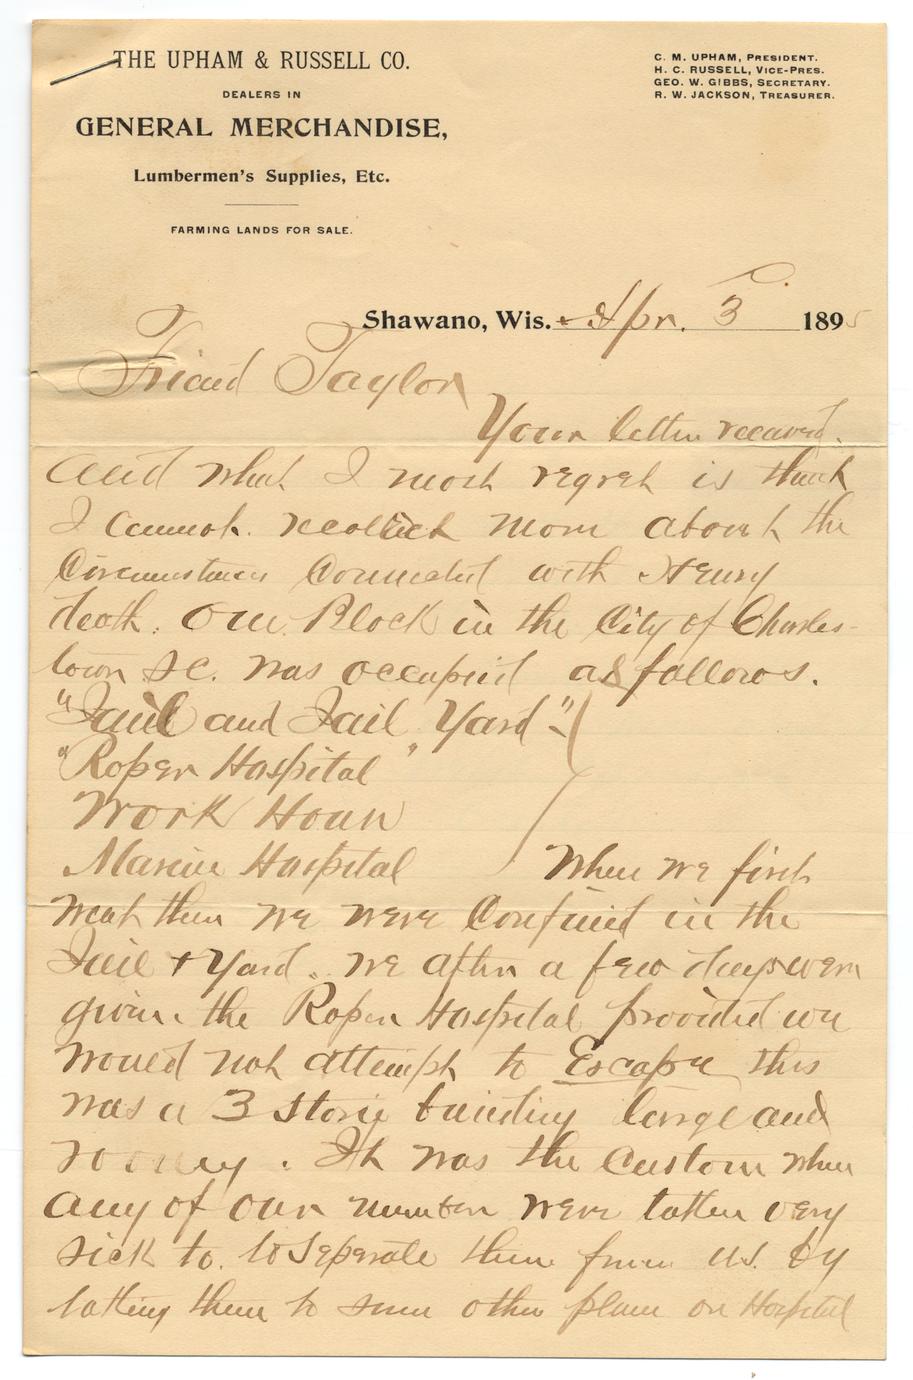 THE UPHAM & RUSSELL CO.
DEALERS IN
GENERAL MERCHANDISE,
Lumbermen's Supplies, Etc.
FARMING LANDS FOR SALE.
C. M. UPHAM, PRESIDENT.
H. C. RUSSELL, VICE-PRES.
GEO. W. GIBBS, SECRETARY.
R. W. JACKSON, TREASURER.
Shawano, Wis. Apr. 3 1895
Friend Taylor
Your letter received.
and what I most regret is that
I cannot. recollect more about the
Circumstances Connected with Henry
death. Our Block in the City of Charles-
town S.C. was occupied as follows.
"Jail and Jail Yard"
"Roper Hospital"
Work House
Marine Hospital When we first
went there we were Confined in the
Jail & Yard. we after a few days were
given the Roper Hospital provided we
would not attempt to Escape this
was a 3 Story building large and
roomy. It was the Custom when
any of our number were taken very
sick to. to Seperate them from us. by
taking them to some other place or Hospital